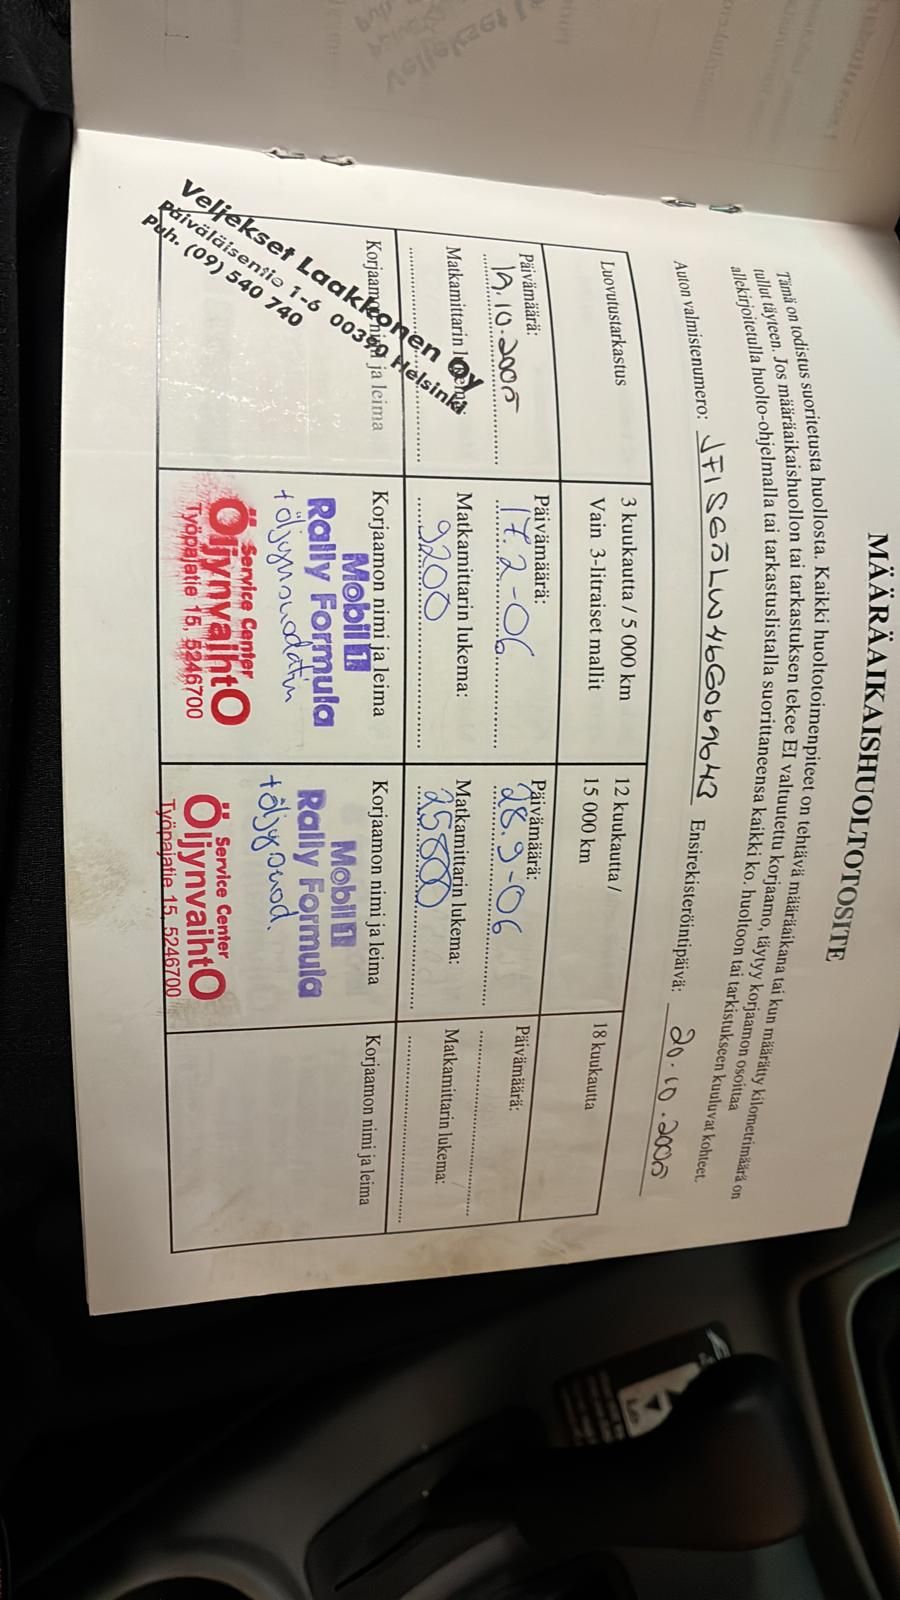 MÄÄRÄAIKAISHUOLTOTOSITE
Tämä on todistus suoritetusta huollosta. Kaikki huoltotoimenpiteet on tehtävä määräaikana tai kun määrätty kilometrimäärä on
tullut täyteen. Jos määräaikaishuollon tai tarkastuksen tekee EI valtuutettu korjaamo, täytyy korjaamon osoittaa
allekirjoitetulla huolto-ohjelmalla tai tarkastuslistalla suorittaneensa kaikki ko. huoltoon tai tarkistukseen kuuluvat kohteet.
Auton valmistenumero: JF1SG5LW46G069643 Ensirekisteröintipäivä: 20.10.2005
Luovutustarkastus
Päivämäärä:
.10.2005
Matkamittarin
Korjaamon nimi ja leima
Veljekset Laakkonen Oy
Päiväläisentie 1-6 00390 Helsinki
Puh. (09) 540 740
3 kuukautta / 5 000 km
Vain 3-litraiset mallit
Päivämäärä:
17.2-06
Matkamittarin lukema:
9200
Korjaamon nimi ja leima
Mobil 1
Rally Formula
+ öljynsuodatin
Service Center
ÖljynvaihtO
Työpajatie 15, 5246700
12 kuukautta /
15 000 km
Päivämäärä:
28.9-06
Matkamittarin lukema:
25800
Korjaamon nimi ja leima
Mobil 1
Rally Formula
+ öljysuod.
Service Center
ÖljynvaihtO
Työpajatie 15, 5246700
18 kuukautta
Päivämäärä:
Matkamittarin lukema:
Korjaamon nimi ja leima